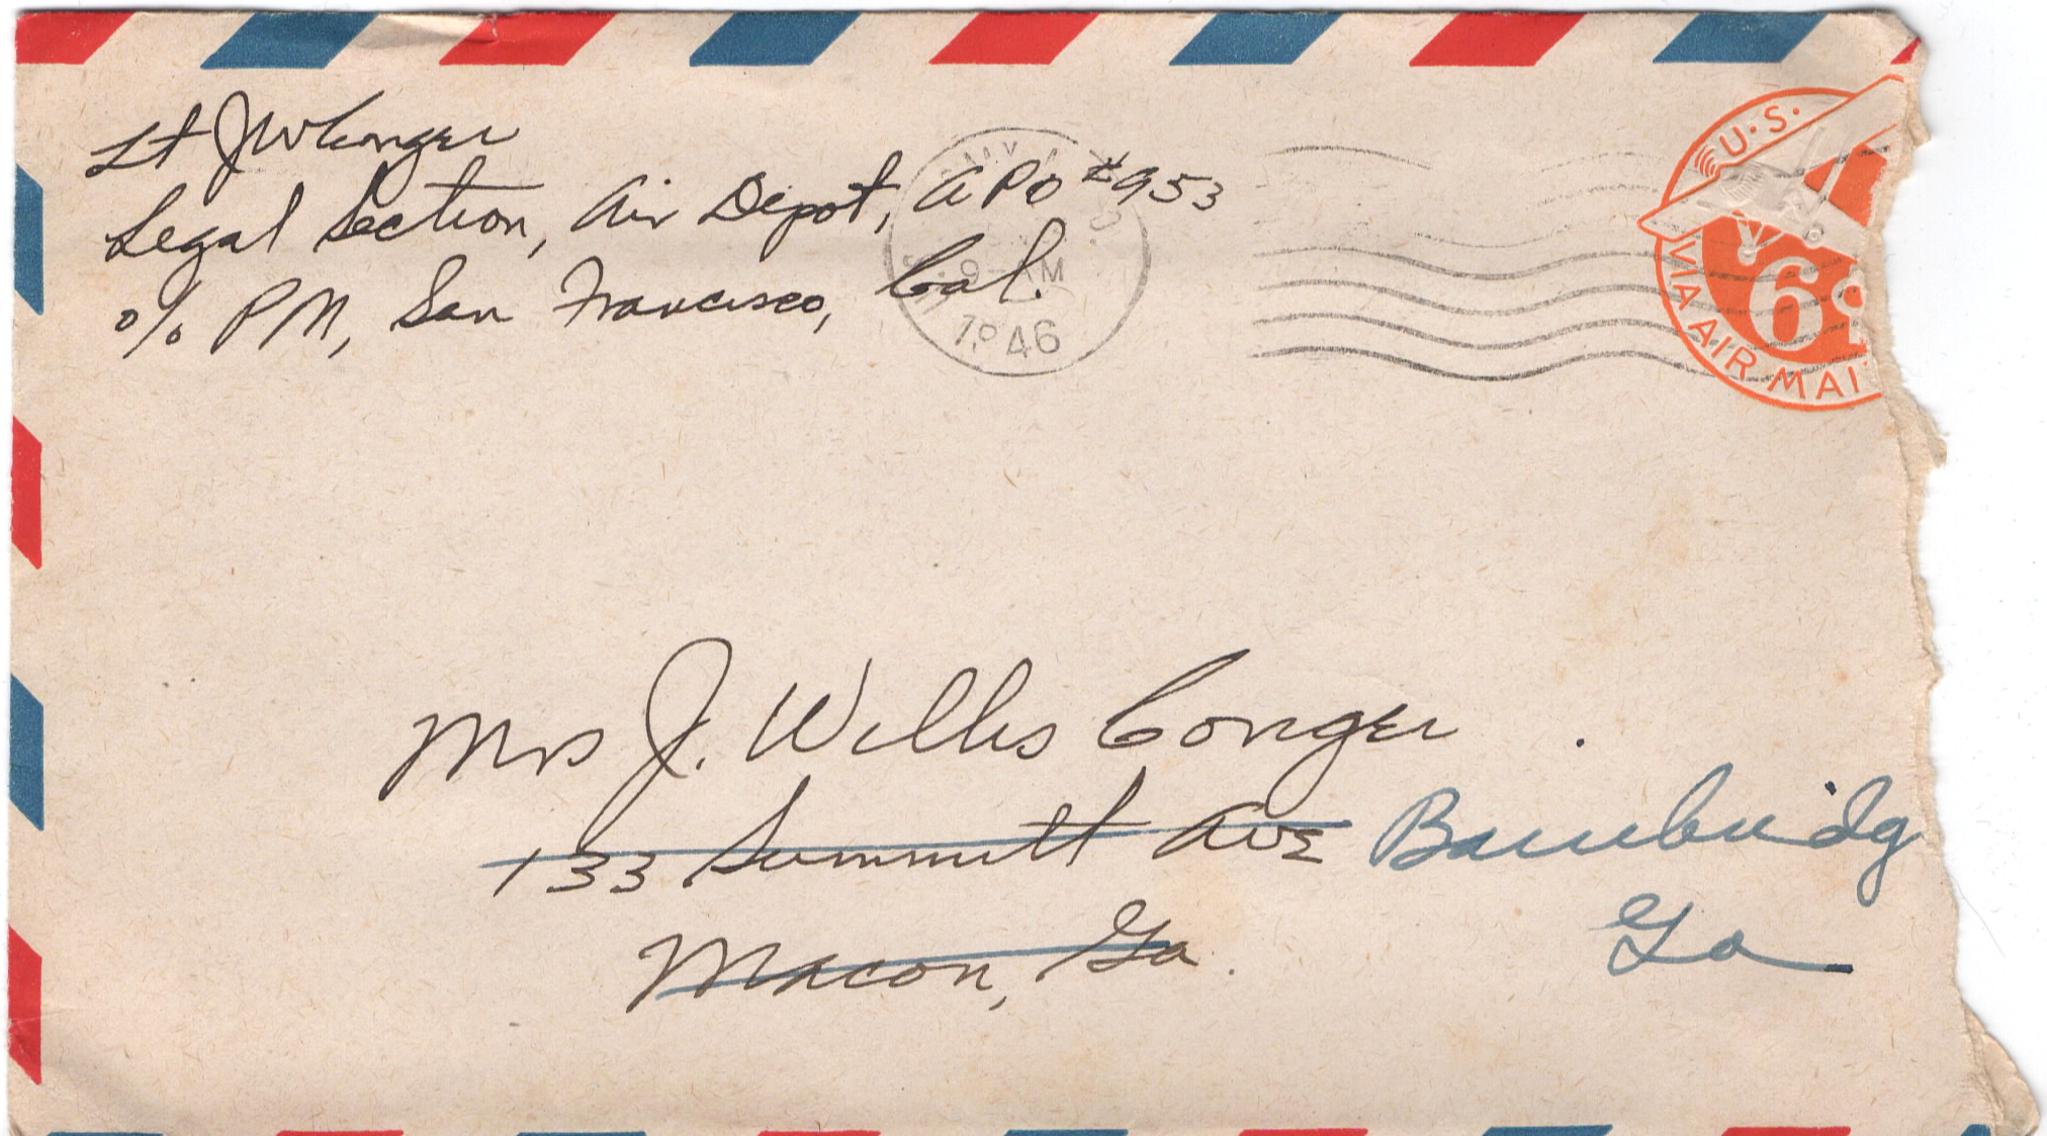 Lt JW Conger
Legal Section, Air Depot, APO #953
c/o PM, San Francisco, Cal.
9-AM
1946
U.S.
6¢
VIA AIR MAI
Mrs J. Willis Conger
133 Summitt Ave
Bainbridg
Macon, Ga.
Ga